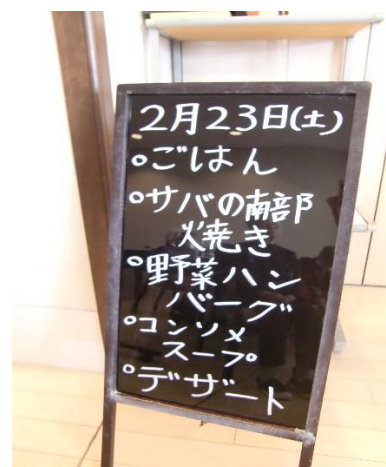 2月23日(土)
○ごはん
○サバの南部
焼き
○野菜ハン
バーグ
○コンソメ
スープ
○デザート